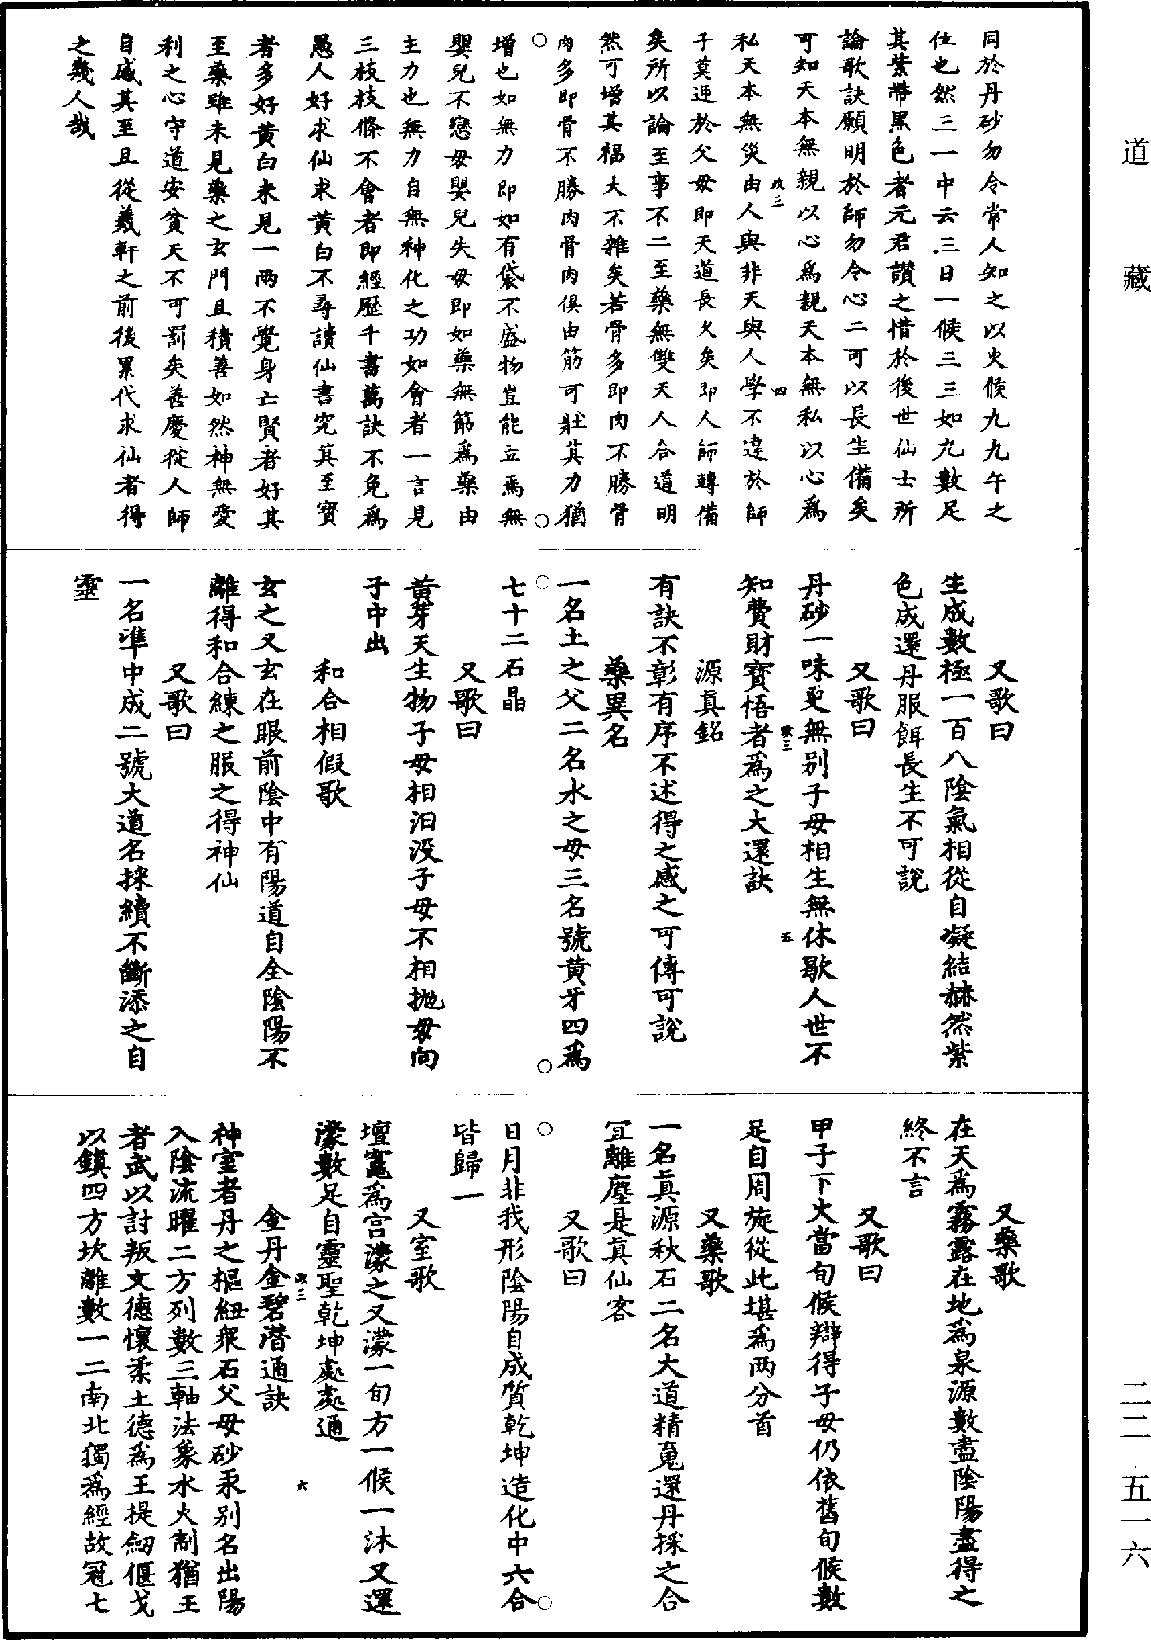 道藏
同於丹砂勿令常人知之以火候九九午之
位也然三一中云三日一候三三如九數足
其紫帶黑色者元君讚之惜於後世仙士所
論歌訣願明於師勿令心二可以長生備矣
可知天本無親以心為親天本無私以心為
私天本無災由人與非天與人學不違於師
子莫逆於父母即天道長久矣即人師轉備
矣所以論至事不二至藥無雙天人合道明
然可增其福大不雜矣若骨多即肉不勝骨
肉多即骨不勝肉骨肉俱由筋可壯其力猶
增也如無力即如有袋不盛物豈能立焉無
嬰兒不戀母嬰兒失母即如藥無筋為藥由
主力也無力自無神化之功如會者一言見
三枝枝條不會者即經歷千書萬訣不免為
愚人好求仙求黃白不尋讀仙書究其至寶
者多好黃白未見一兩不覺身亡賢者好其
至藥雖未見藥之玄門且積善如然神無愛
利之心守道安貧天不可罰矣善慶從人師
自感其至且從羲軒之前後累代求仙者得
之幾人哉
又歌曰
生成數極一百八陰氣相從自凝結赫然紫
色成還丹服餌長生不可說
又歌曰
丹砂一味更無別子母相生無休歇人世不
知費財寶悟者為之大還訣
源真銘
有訣不彰有序不述得之感之可傳可說
藥異名
一名土之父二名水之母三名號黃牙四為
七十二石晶
又歌曰
黃芽天生物子母相汩沒子母不相拋母向
子中出
和合相假歌
玄之又玄在眼前陰中有陽道自全陰陽不
離得和合練之服之得神仙
又歌曰
一名準中成二號大道名採續不斷添之自
靈
又藥歌
在天為霧露在地為泉源數盡陰陽盡得之
終不言
又歌曰
甲子下火當旬候辯得子母仍依舊旬候數
足自周旋從此堪為兩分首
又藥歌
一名真源秋石二名大道精䰟還丹採之合
宜離塵是真仙客
又歌曰
日月非我形陰陽自成質乾坤造化中六合
皆歸一
又室歌
壇竈為宮濛之又濛一旬方一候一沐又還
濛數足自靈聖乾坤處處通
金丹金碧潛通訣
神室者丹之樞紐衆石父母砂汞別名出陽
入陰流曜二方列數三軸法象水火制猶王
者武以討叛文德懷柔土德為王提劒偃戈
以鎮四方坎離數一二南北獨為經故冠七
二二·五一六